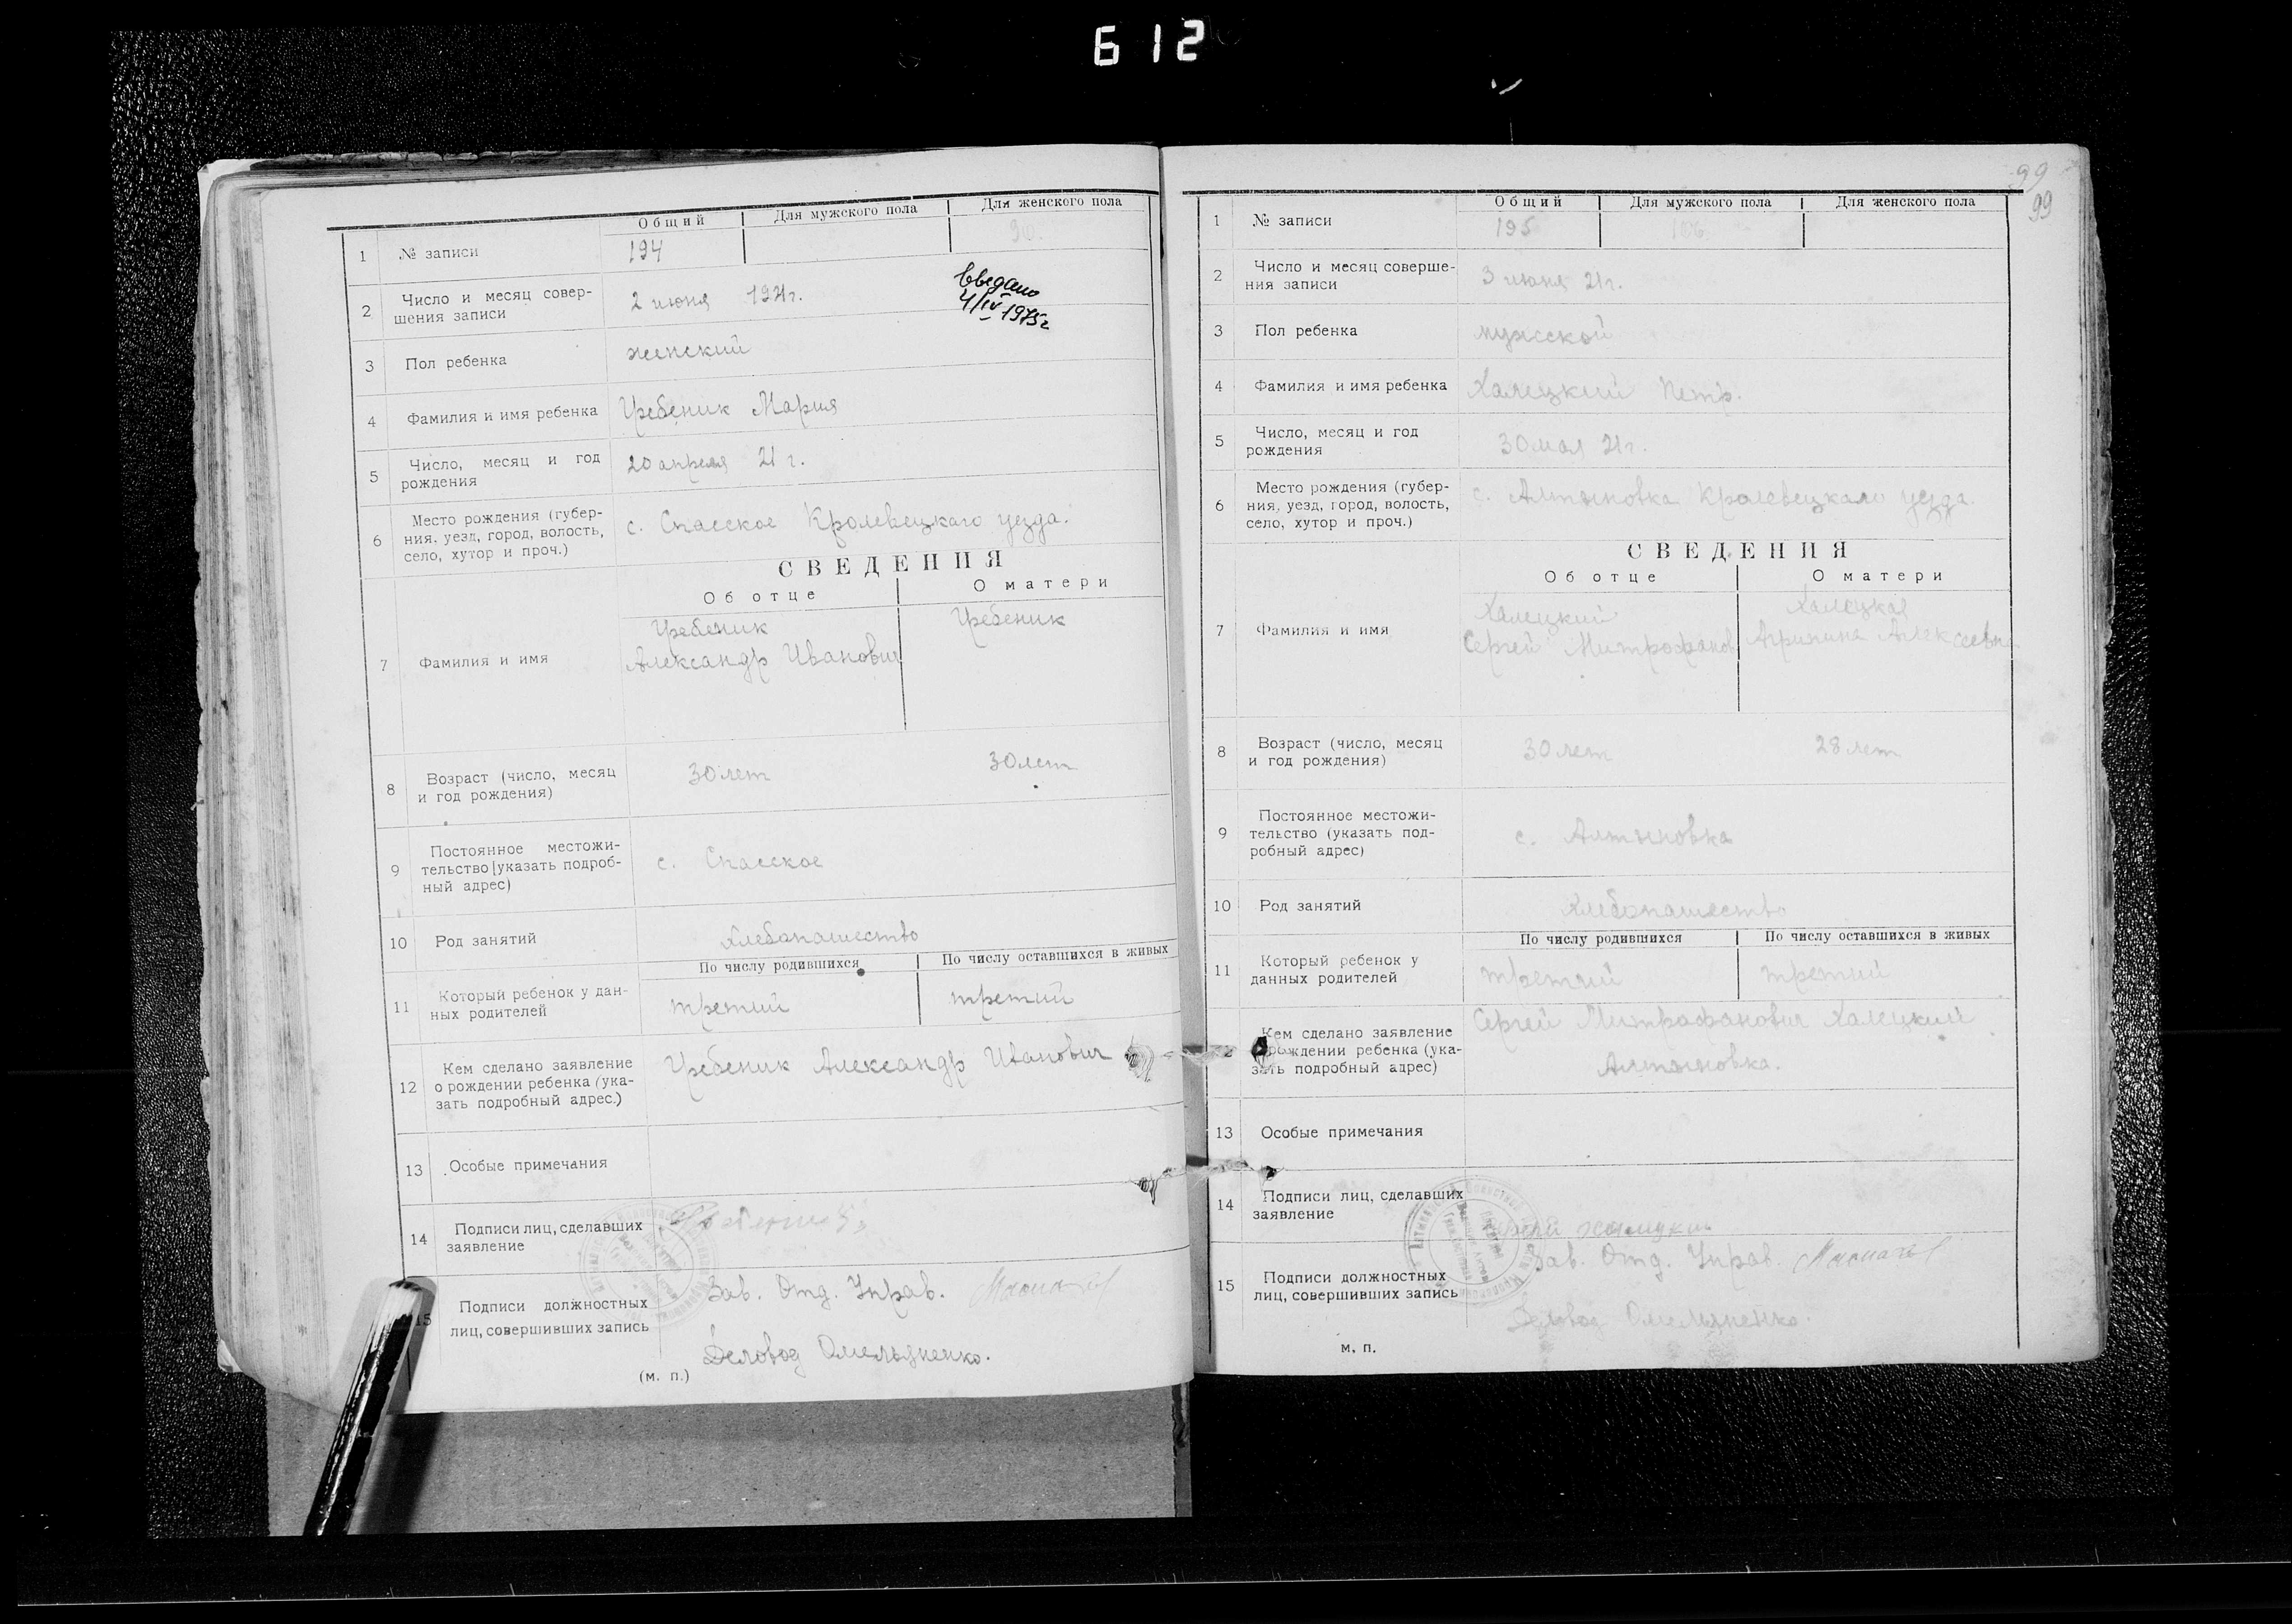 612
Общий Для мужского пола Для женского пола
1 № записи 194 90.
2 Число и месяц совер-
шения записи 2 июня 1921г.
введено
4/IV 1975г
3 Пол ребенка женский
4 Фамилия и имя ребенка Гребеник Мария
5 Число, месяц и год
рождения 20 апреля 21 г.
6 Место рождения (губер-
ния, уезд, город, волость,
село, хутор и проч.) с. Спасское Кролевецкаго уезда.
СВЕДЕНИЯ
Об отце О матери
7 Фамилия и имя
Гребеник Гребеник
Александр Иванович
8 Возраст (число, месяц
и год рождения) 30 лет 30 лет
9 Постоянное местожи-
тельство (указать подроб-
ный адрес) с. Спасское
10 Род занятий Хлебопашество
По числу родившихся По числу оставшихся в живых
11 Который ребенок у дан-
ных родителей третий третий
12 Кем сделано заявление
о рождении ребенка (ука-
зать подробный адрес.) Гребеник Александр Иванович
13 Особые примечания
14 Подписи лиц, сделавших
заявление
15 Подписи должностных
лиц, совершивших запись Зав. Отд. Управ.
Деловод Омельяненко.
(м. п.)
99
99
Общий Для мужского пола Для женского пола
1 № записи 195
2 Число и месяц соверше-
ния записи 3 июня 21г.
3 Пол ребенка мужской
4 Фамилия и имя ребенка Халецкий Петр.
5 Число, месяц и год
рождения 30 мая 21г.
6 Место рождения (губер-
ния, уезд, город, волость,
село, хутор и проч.) с. Алтыновка Кролевецкаго уезда.
СВЕДЕНИЯ
Об отце О матери
7 Фамилия и имя
Халецкий Халецкая
Сергей Митрофанов Агрипина Алексеевна
8 Возраст (число, месяц
и год рождения) 30 лет 28 лет
9 Постоянное местожи-
тельство (указать под-
робный адрес) с. Алтыновка
10 Род занятий Хлебопашество
По числу родившихся По числу оставшихся в живых
11 Который ребенок у
данных родителей третий третий
Кем сделано заявление
рождении ребенка (ука-
зать подробный адрес) Сергей Митрофанович Халецкий
Алтыновка.
13 Особые примечания
14 Подписи лиц, сделавших
заявление
15 Подписи должностных
лиц, совершивших запись Зав. Отд. Управ.
Деловод Омельяненко.
м. п.